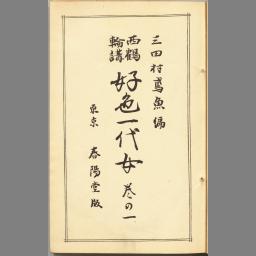 三田村鳶魚編
西鶴輪講
好色一代女 巻の一
東京 春陽堂版